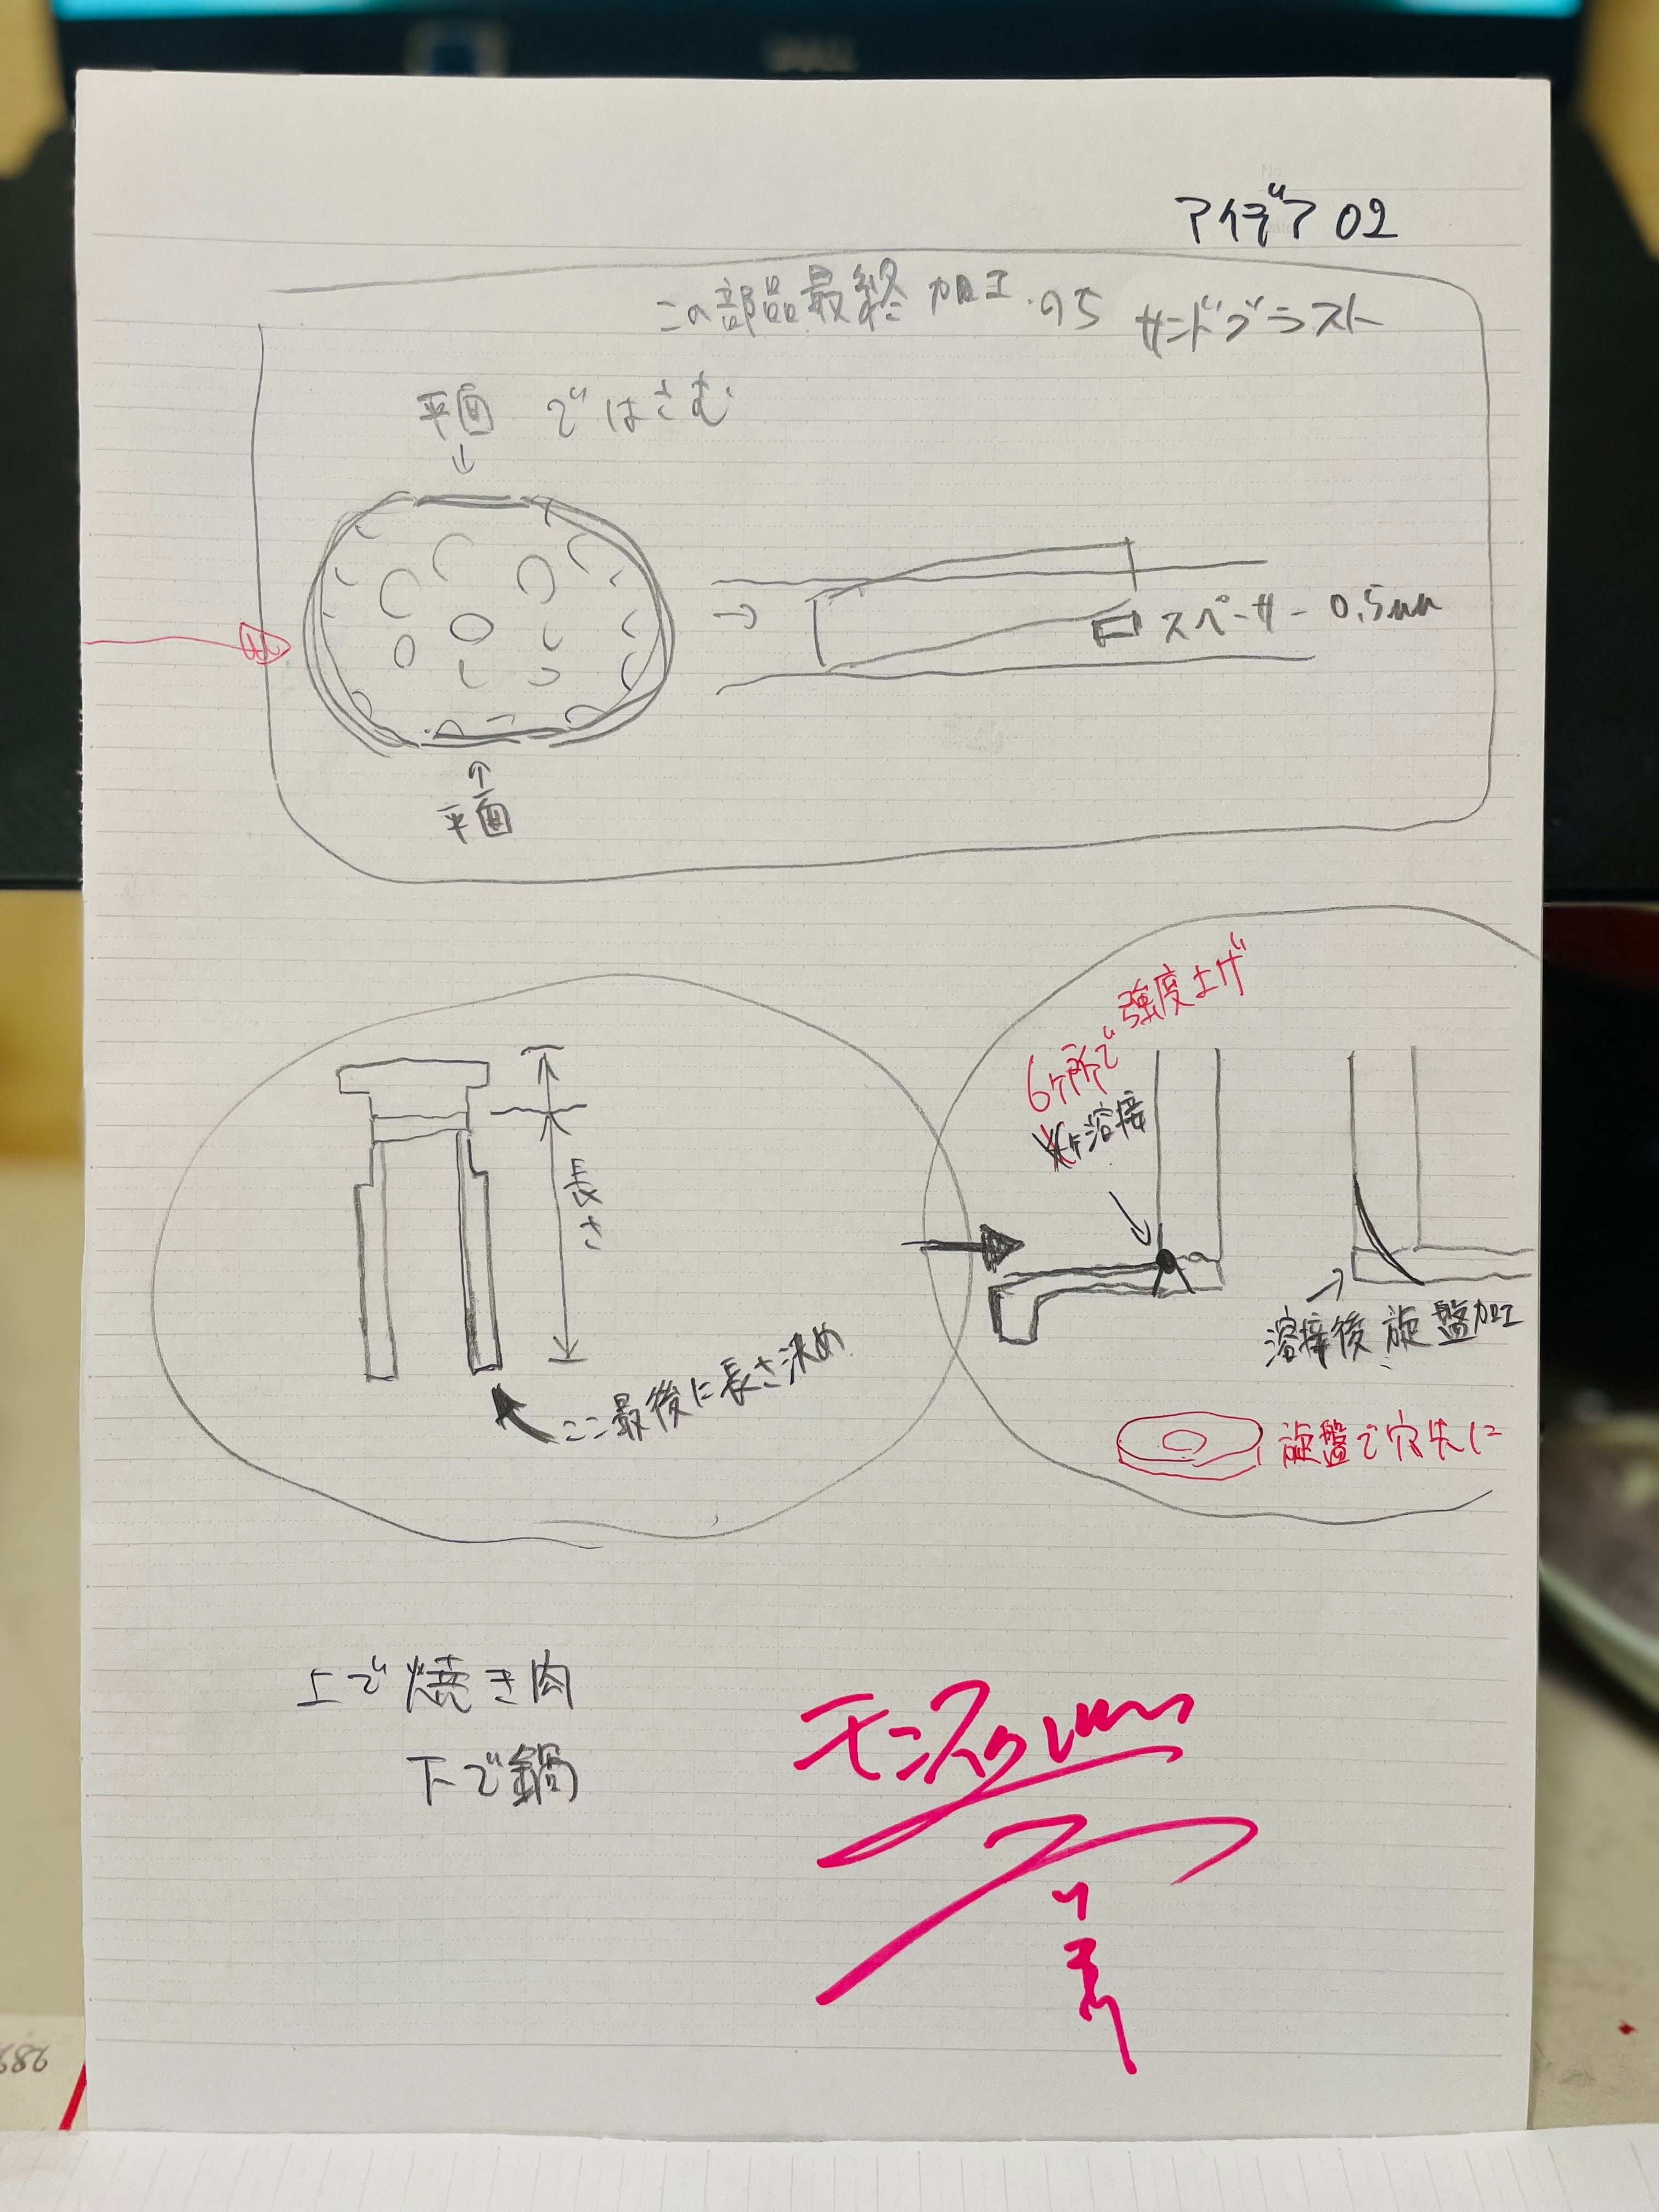 アイデア 02
この部品最終加工のち サンドブラスト
平面 ではさむ
スペーサー 0.5mm
平面
6ヶ所で強度上げ
ヶ溶接
長さ
ここ最後に長さ決め
溶接後 旋盤加工
旋盤で穴先に
上で焼き肉
下で鍋
DELL